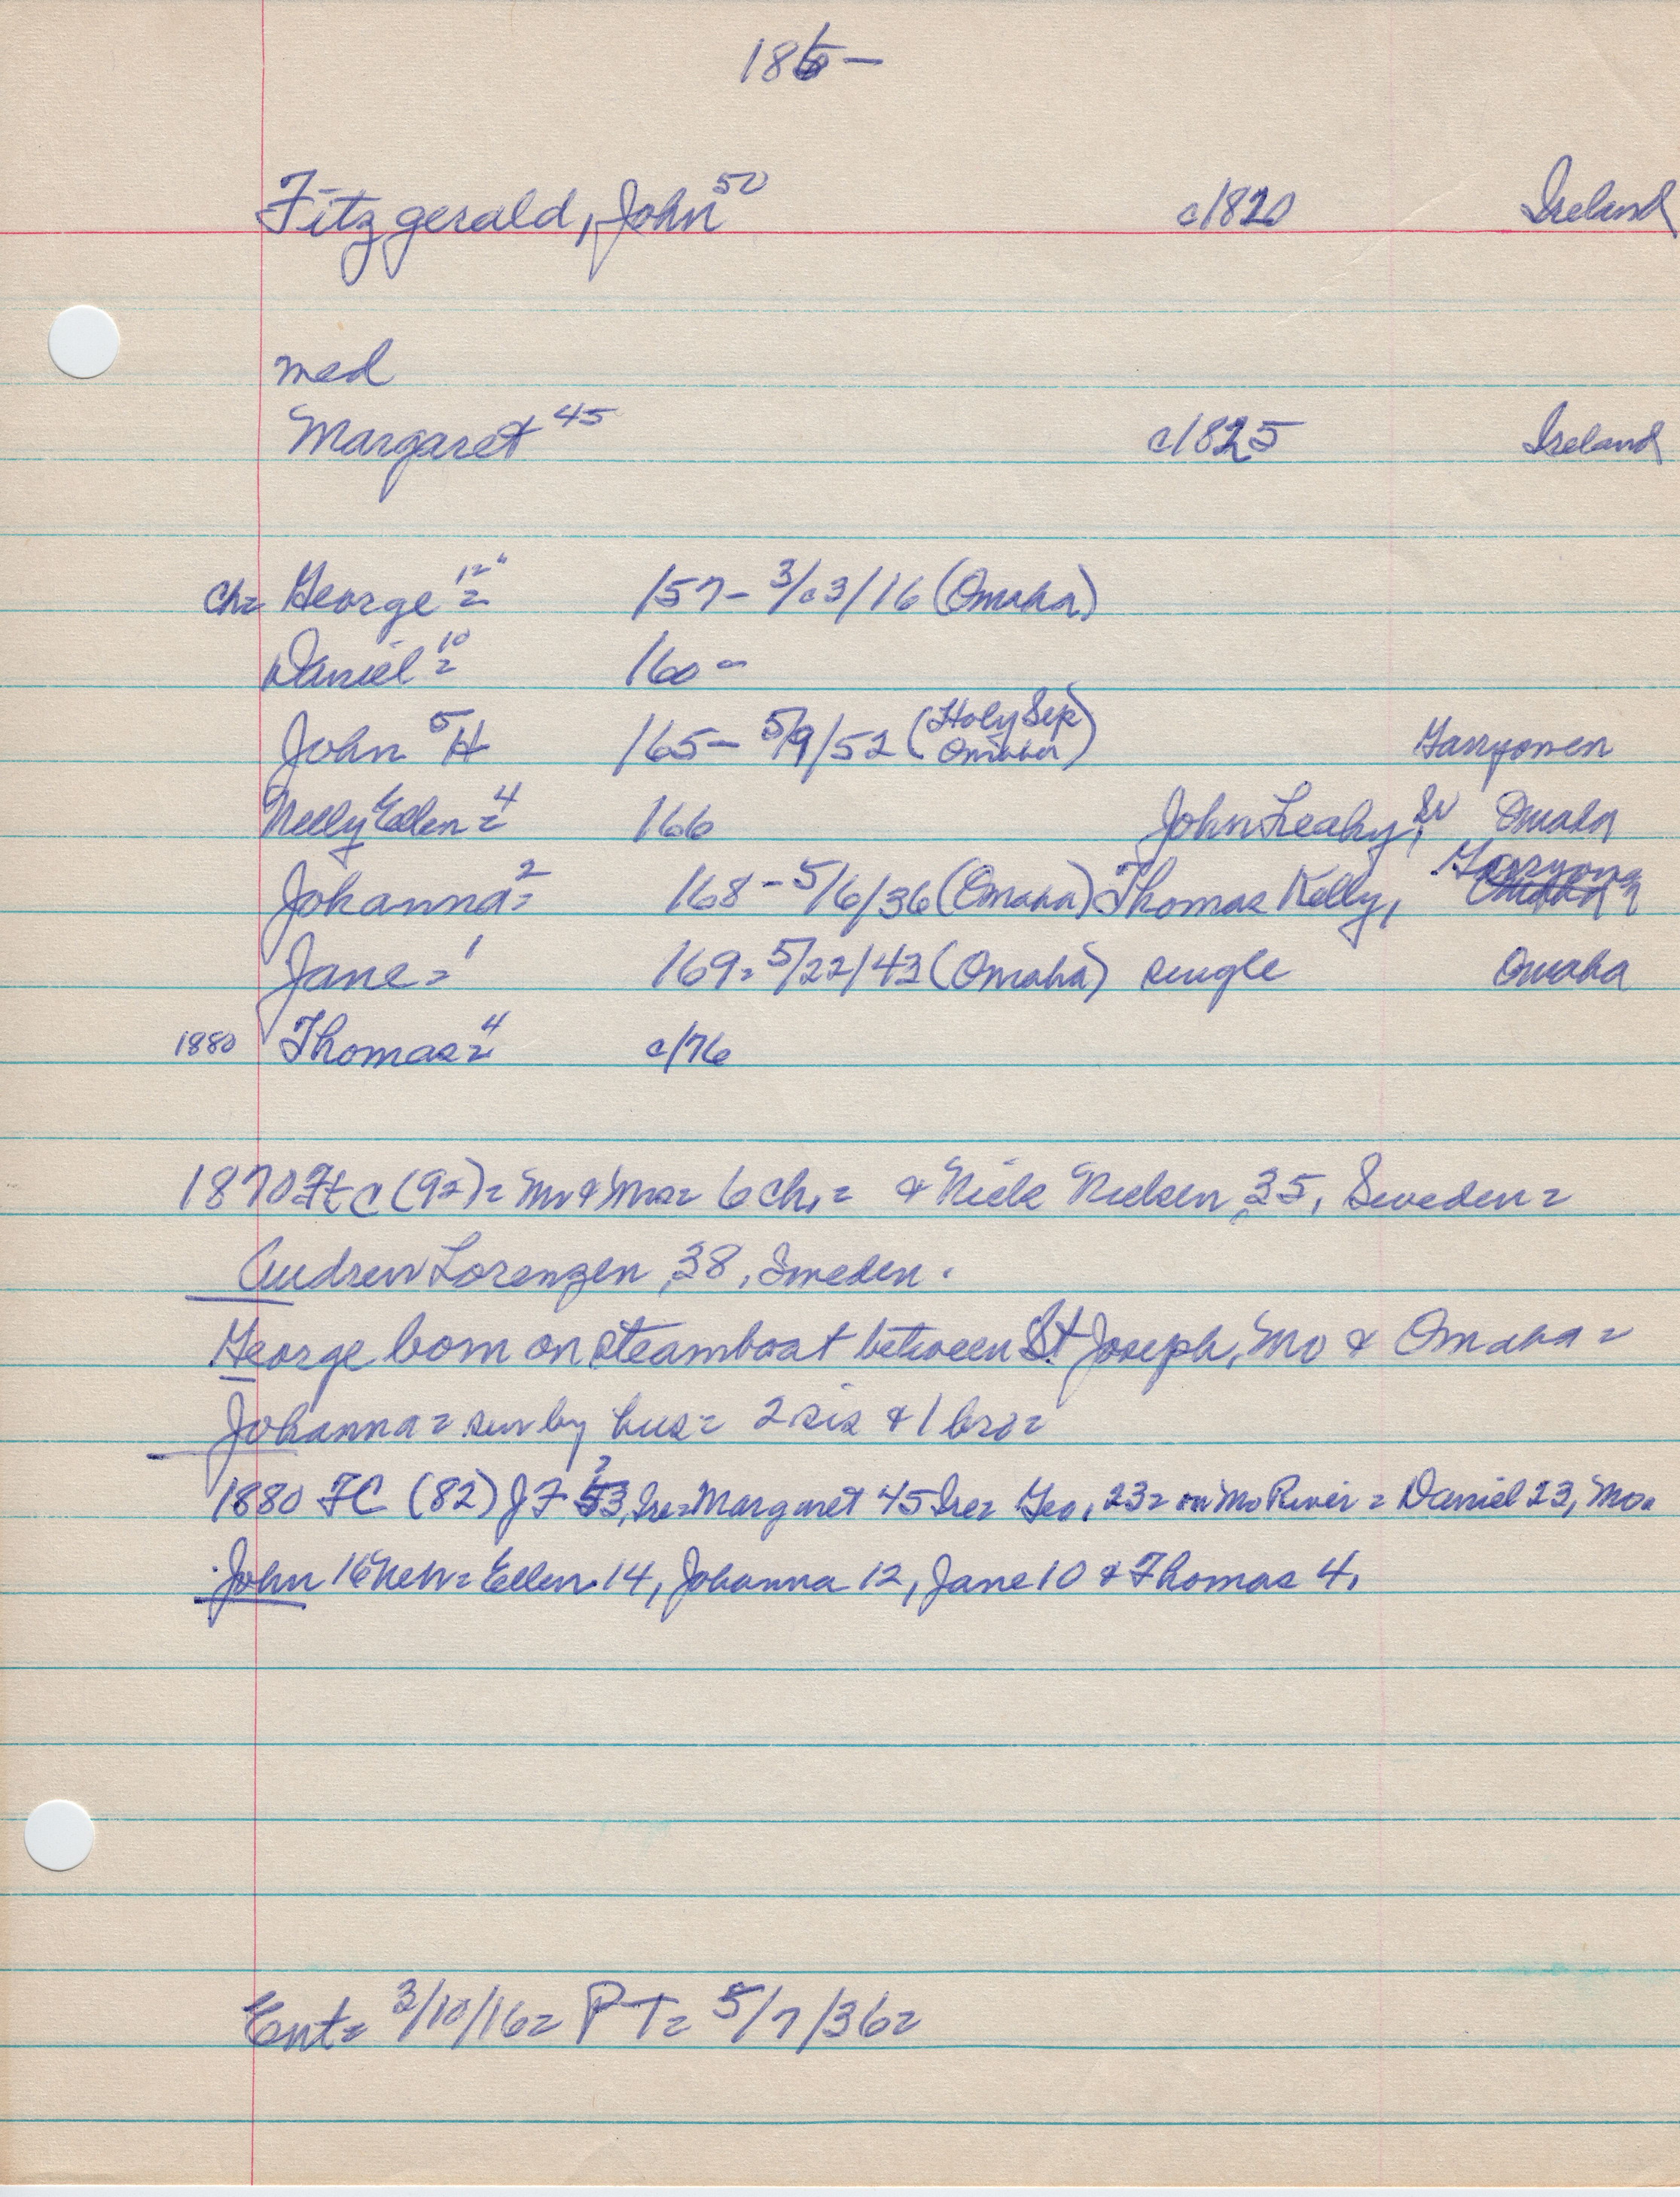 186-
Fitzgerald, John 50 c1820 Ireland
med
Margaret 45 c1825 Ireland
ch= George 12 = 157- 3/03/16 (Omaha)
Daniel 10 = 160 -
John 5 H 165- 5/9/52 (Holy Sep Omaha) Garryowen
Nelly Ellen 4 = 166 John Leahy, Sr Omaha
Johanna 2 = 168 - 5/6/36 (Omaha) Thomas Kelly, Garryowen
Jane = 1 169= 5/22/43 (Omaha) single Omaha
1880 Thomas 4 = c/76
1870 Ft C (92) = Mr & Mrs = 6 ch, = & Niels Nielsen, 35, Sweden =
Andrew Lorenzen, 38, Sweden.
George born on steamboat between St Joseph, Mo & Omaha =
Johanna = sur by hus = 2 sis & 1 bro =
1880 FC (82) J F 53, Ire = Margaret 45 Ire = Geo, 23 = on Mo River = Daniel 23, Mo =
John 16 Neb = Ellen 14, Johanna 12, Jane 10 & Thomas 4.
Ent= 3/10/16= PT= 5/7/36=